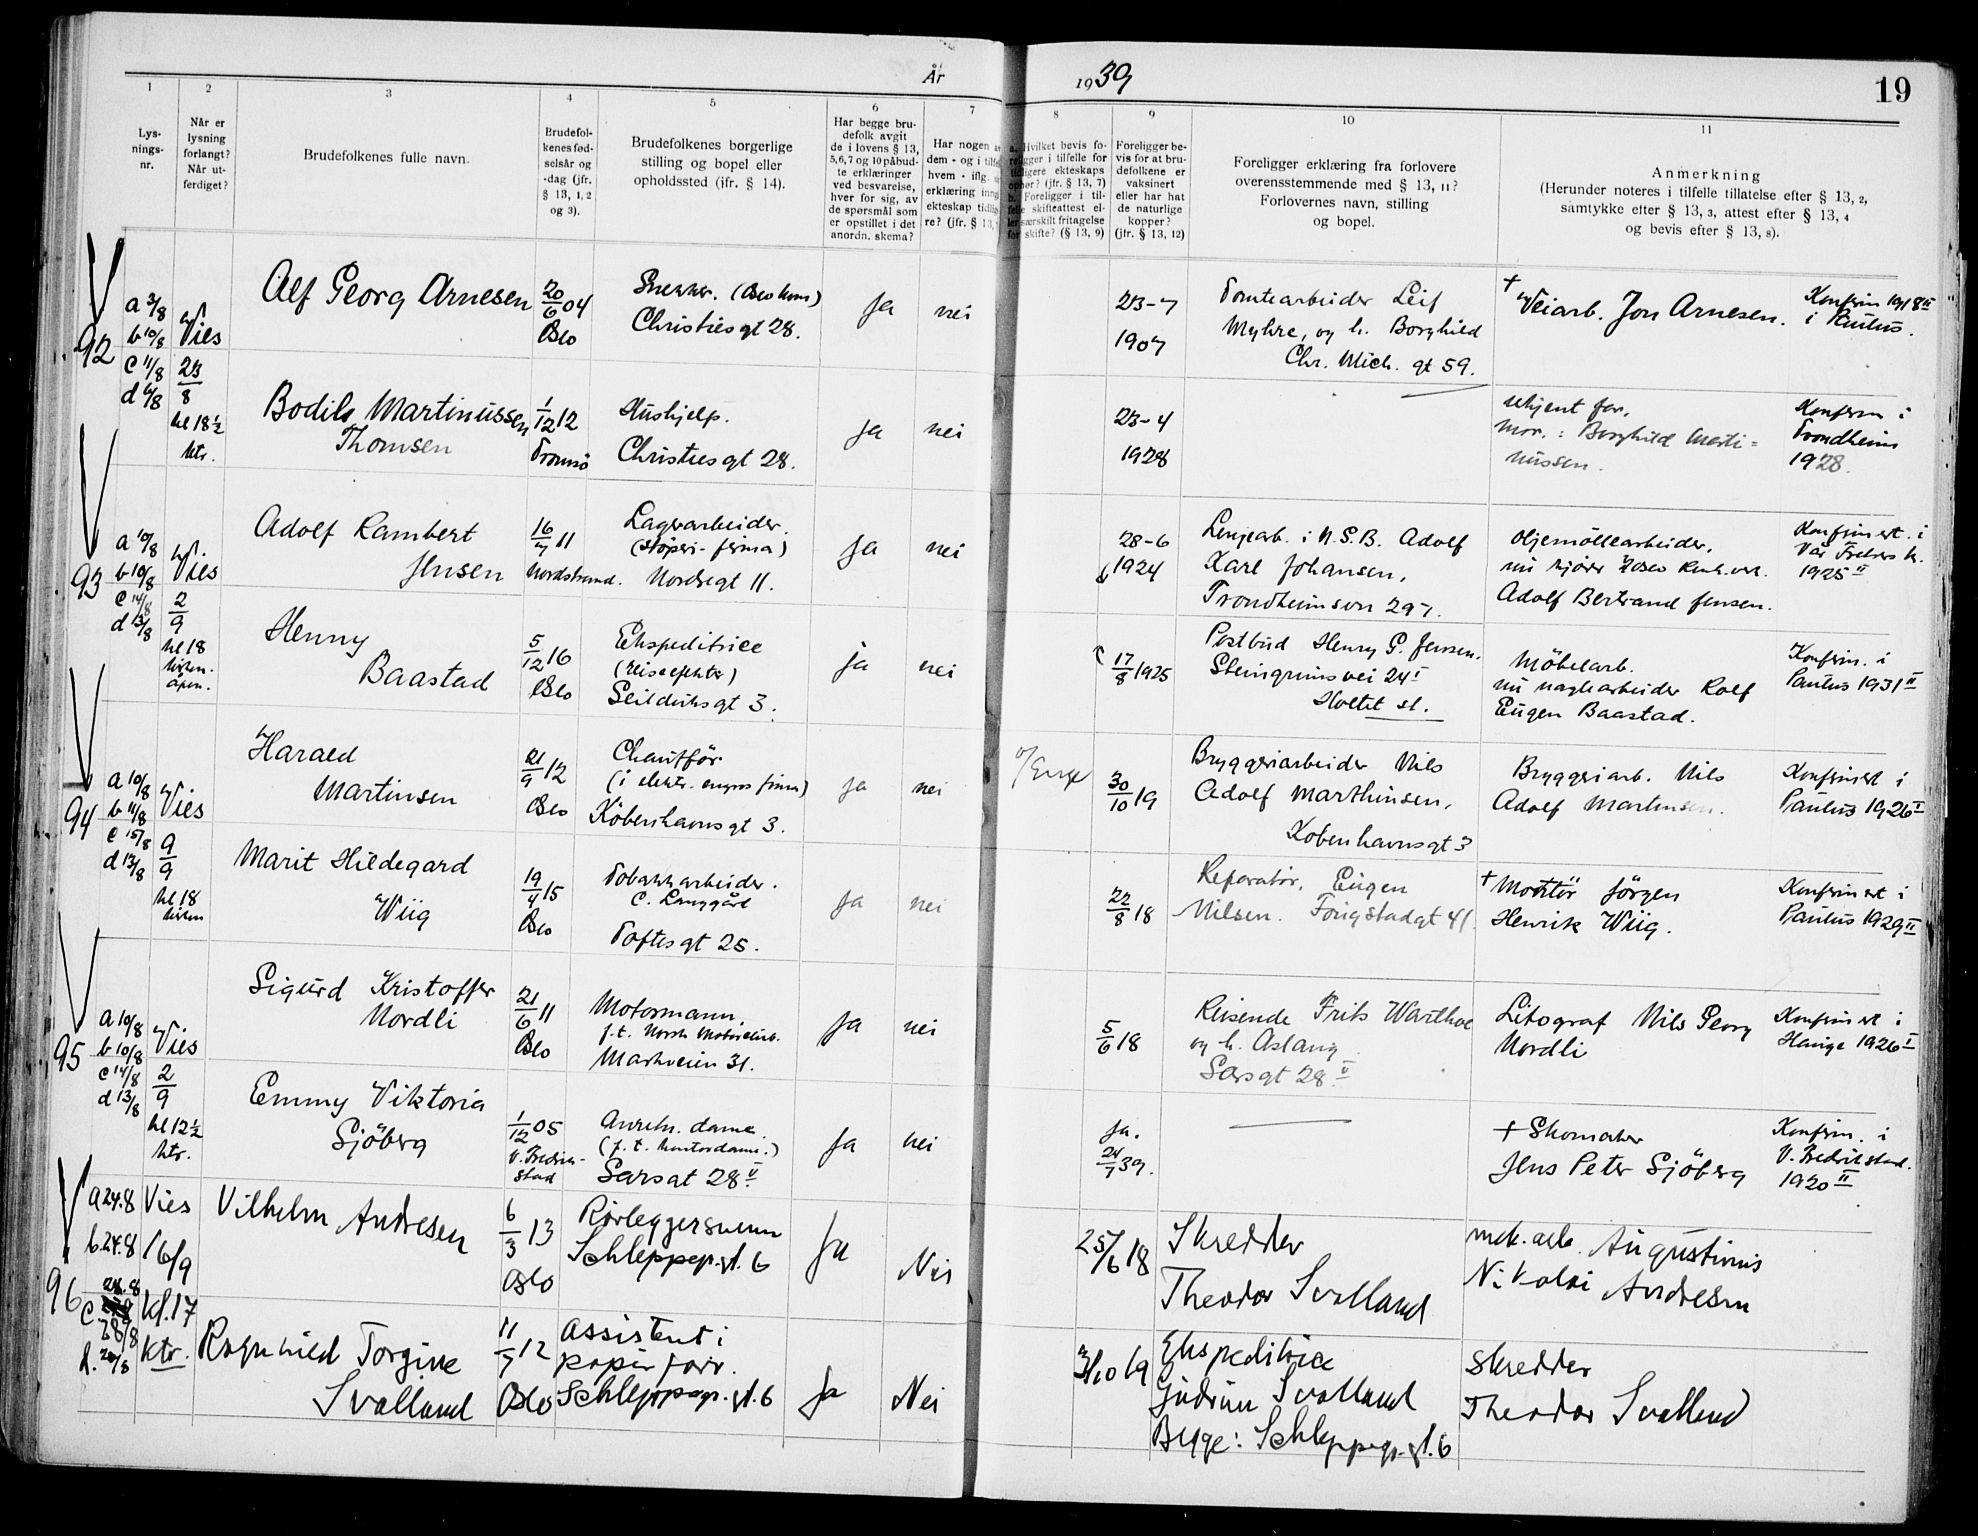 År 1939
19
1 2 3 4 5 6 7 8 9 10 11
Lys-
nings-
nr.
Når er
lysning
forlangt?
Når ut-
ferdiget?
Brudefolkenes fulle navn.
Brudefol-
kenes fød-
selsår og
-dag (jfr.
§ 13, 1, 2
og 3).
Brudefolkenes borgerlige
stilling og bopel eller
opholdssted (jfr. § 14).
Har begge bru-
defolk avgit
de i lovens § 13,
5, 6, 7 og 10 påbud-
te erklæringer
ved besvarelse,
hver for sig, av
de spørsmål som
er opstillet i det
anordn. skema?
Har nogen
dem - og i
hvem - iflg.
erklæring
ekteskap
re? (jfr. § 13,
a. Hvilket bevis fo-
religger i tilfelle for
tidligere ekteskaps
ophør? (jfr. § 13, 7)
b. Foreligger i til-
felle skifteattest el-
ler særskilt fritagelse
for skifte? (§ 13, 9)
Foreligger be-
vis for at bru-
defolkene er
vaksinert
eller har hat
de naturlige
kopper?
(jfr. § 13, 12)
Foreligger erklæring fra forlovere
overensstemmende med § 13, 11?
Forlovernes navn, stilling
og bopel.
Anmerkning
(Herunder noteres i tilfelle tillatelse efter § 13, 2,
samtykke efter § 13, 3, attest efter § 13, 4
og bevis efter § 13, 8).
92
a 3/8
b 10/8
c 11/8
Vies
23/8
kl 18 1/2
ktr.
Alf Georg Arnesen
20/6 04
Oslo
Snekker.
Christiesgt 28.
Ja
nei
23-7
1907
Tomtearbeider Leif
Myhre, og h. Borghild
Chr. Mich. gt 59.
+ Veiarb. Jon Arnesen.
Konfirm 1918 II
i Paulus.
Bodil Martinussen
Thomsen
1/12 12
Tromsø
Hushjelp.
Christiesgt 28.
Ja
nei
23-4
1928
Ukjent far.
Mor.: Borghild Marti=
nussen.
Konfirm i
Trondheim
1928.
93
a 10/8
b 10/8
c 14/8
d 13/8
Vies
2/9
kl 18
kirken.
åpen.
Adolf Rambert
Jensen
16/7 11
Nordstrand.
Lagerarbeider.
(støperi-firma)
Nordregt 11.
Ja
nei
28-6
1924
i N.S.B. Adolf
Karl Johansen,
Trondheimsvn
Oljemøllearbeider,
nu
Adolf Bertrand Jensen.
Konfirmert. i
Vår Frelsers k.
1925 II
Henny
Baastad
5/12 16
Oslo
Ekspeditrice
(reiseeffekter)
Seilduksgt 3.
ja
nei
17/8 1925
Postbud Henry G. Jensen.
Steingrimsvei 24 I
Holtet st.
Møbelarb.
nu Rolf
Eugen Baastad.
Konfirm. i
Paulus 1931 II
94
a 10/8
b 11/8
c 15/8
d 13/8
Vies
9/9
kl 18
kirken
Harald
Martinsen
21/9 12
Oslo
Chauffør
(i elektr. engros firma)
Københavnsgt 3.
Ja
nei
30/10 19
Bryggeriarbeider Nils
Adolf Marthinsen,
Københavnsgt 3
Bryggeriarb. Nils
Adolf Martinsen.
Konfirmert i
Paulus 1926 I
Marit Hildegard
Wiig
19/4 15
Oslo
Tobakkarbeider.
C. Langgård
Toftesgt 25.
Ja
nei
22/8 18
Reparatør, Eugen
Nilsen. Fougstadgt 41.
+ Montør Jørgen
Henrik Wiig.
Konfirmert i
Paulus 1929 II
95
a 10/8
b 10/8
c 14/8
d 13/8
Vies
2/9
kl 12 1/2
ktr.
Sigurd Kristoffer
Nordli
21/6 11
Oslo
Motormann.
f.t. Norsk
Markveien 31.
Ja
nei
5/6 18
Reisende Frits Warthoe
og h. Aslaug
Sarsgt 28. V
Litograf Nils Georg
Nordli
Konfirmert i
Hauge 1926 I
Emmy Viktoria
Sjøberg
1/12 05
V. Fredrik-
stad
dame.
(f.t. kontordame.)
Sarsgt 28. V
Ja
nei
Ja.
39.
+ Skomaker
Jens Peter Sjøberg
Konfirm. i
V. Fredrikstad.
1920 II
96
a 24.8
b. 24.8
c 28/8
Vies
16/9
kl. 17
ktr.
Vilhelm Andresen
6/3 13
Oslo
Rørleggersvenn
Schleppegr. gt. 6
Ja
Nei
25/6 18
Skredder
Theodor Svalland
mek. arb. Augustinus
Nikolai Andresen
Ragnhild Torgine
Svalland
11/7 12
Oslo
Assistent i
papirforr.
Schleppegr. gt. 6
Ja
Nei
3/10 19
Ekspeditrice
Gudrun Svalland
Begge: Schleppegr. gt. 6
Skredder
Theodor Svalland